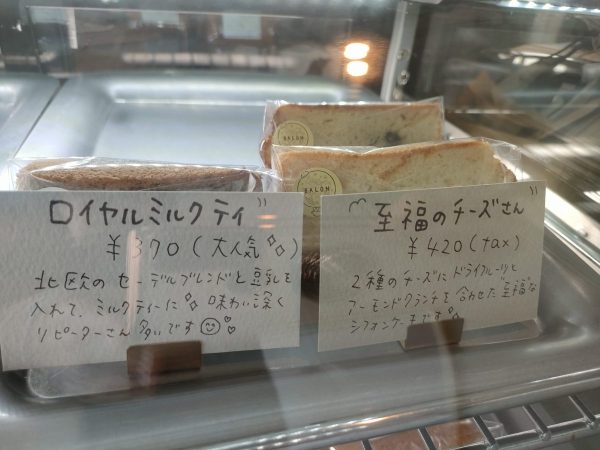 ロイヤルミルクティ
¥370(大人気)
北欧のセーデルブレンドと豆乳も
入れて、ミルクティーに 味わい深く
リピーターさん多いです
至福のチーズさん
¥420(tax)
2種のチーズにドライフルーツと
アーモンドクランチを合わせた"至福"な
シフォンケーキです
SALON
SALON